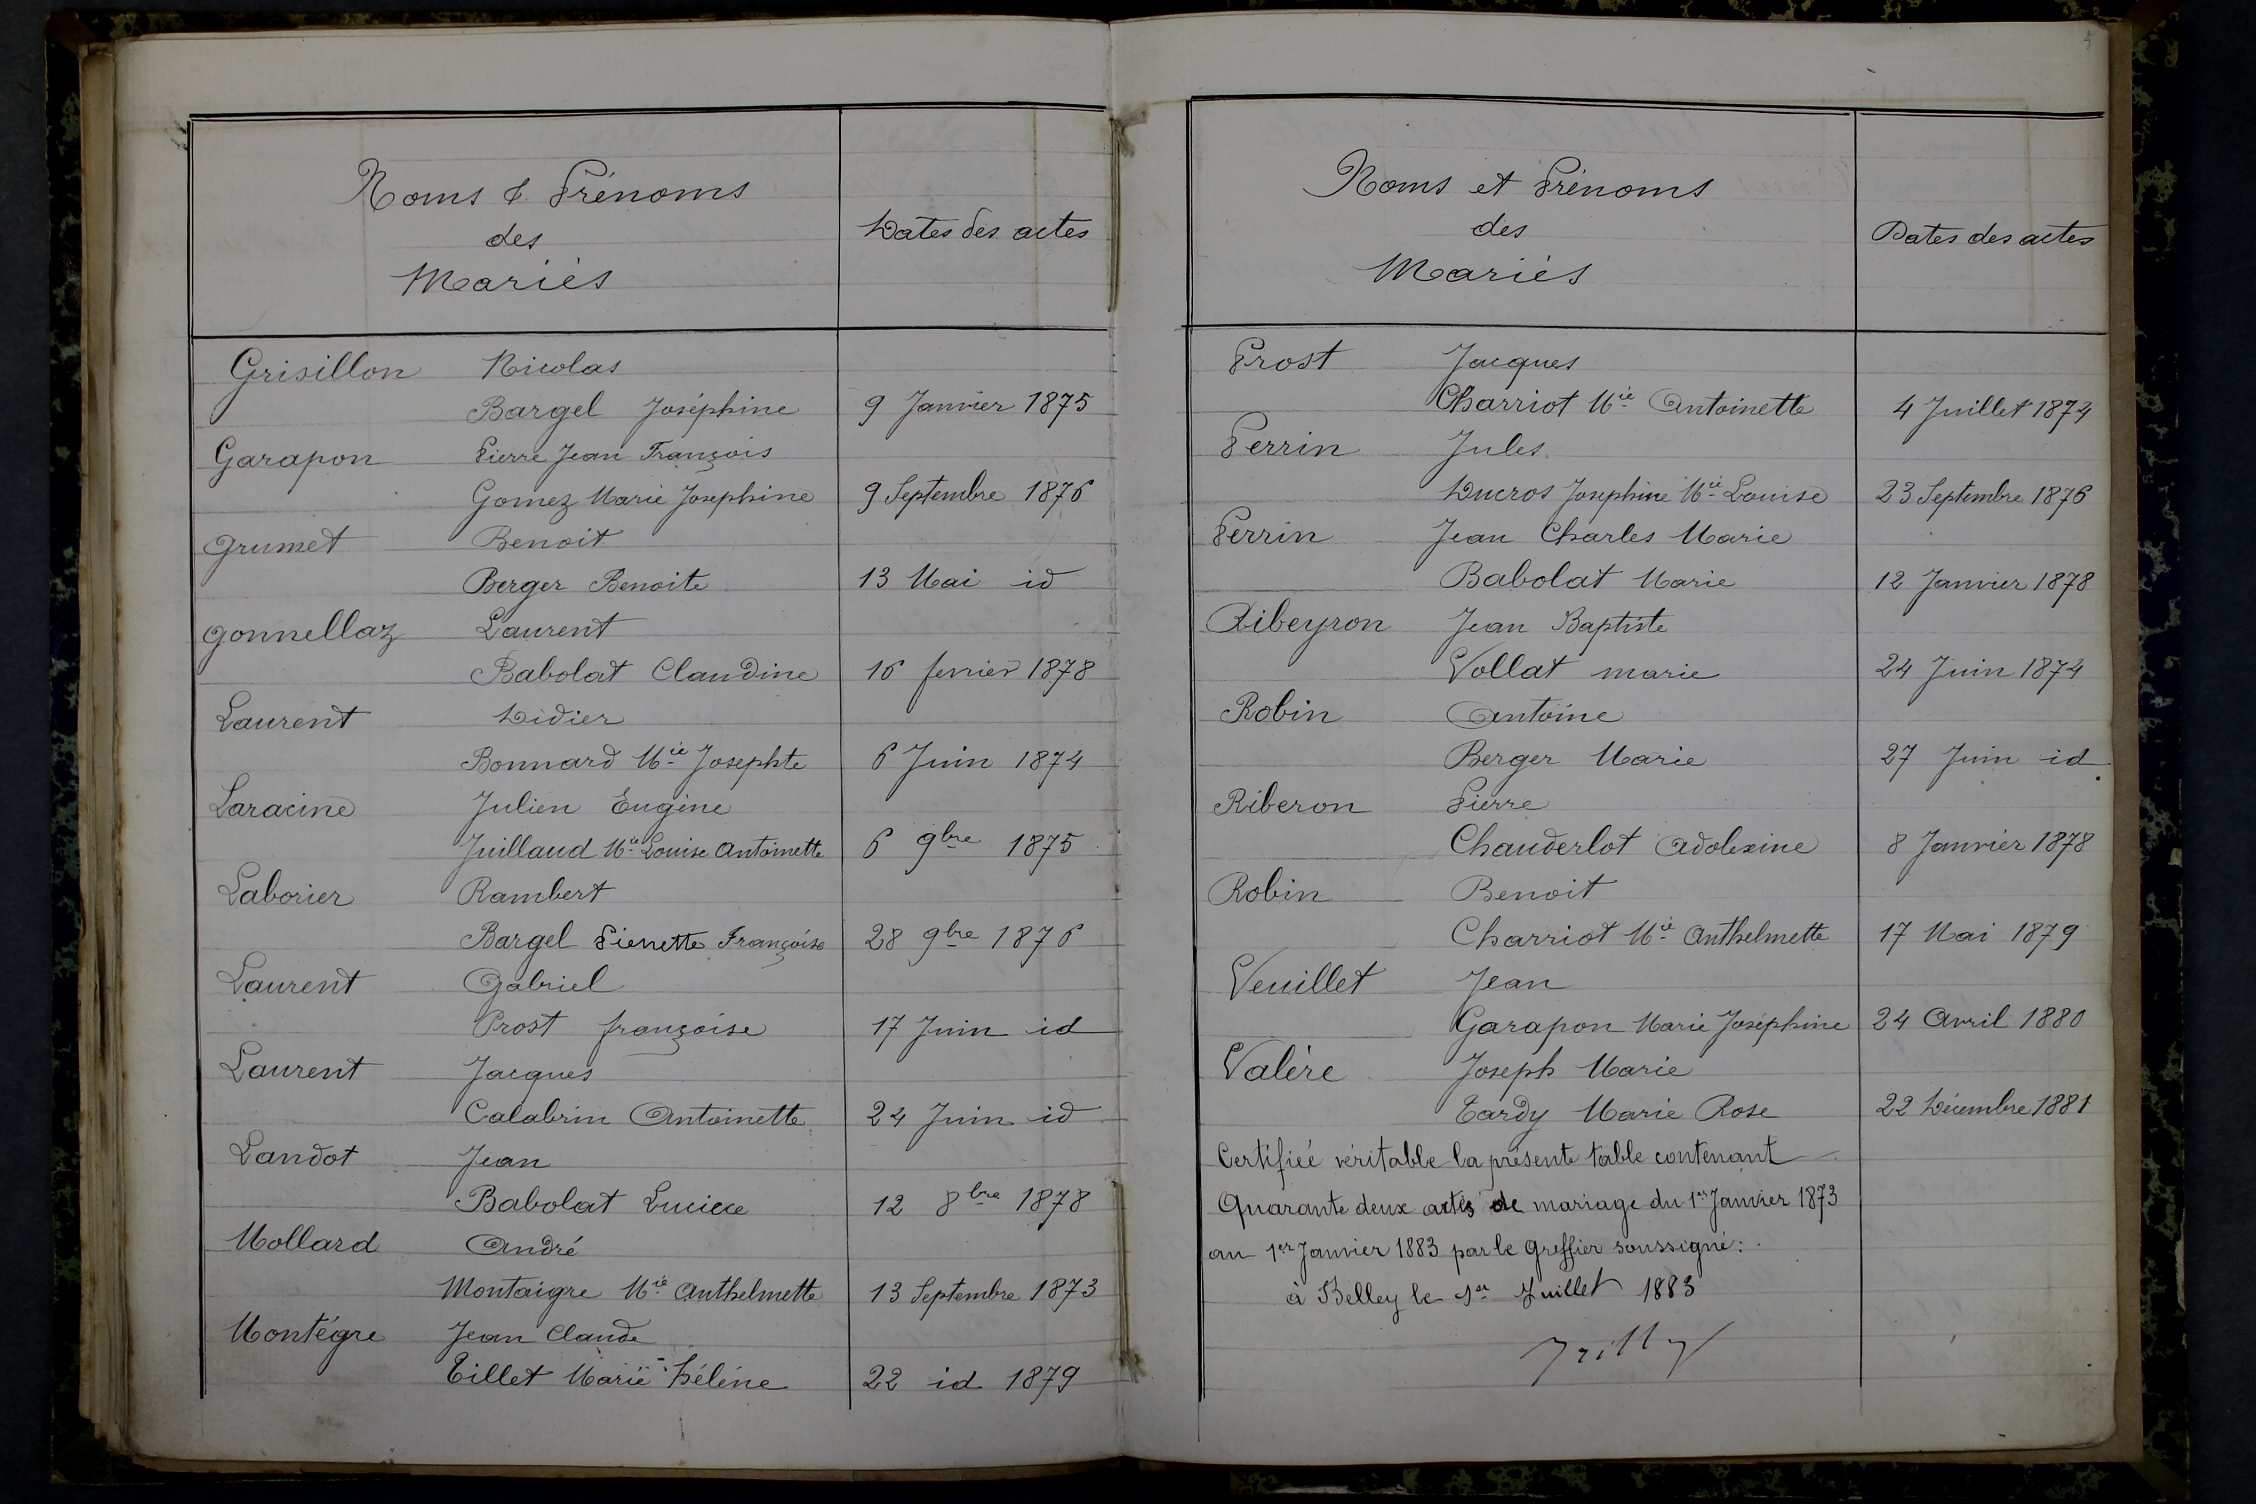 Noms & Prénoms
des
Mariés
Dates des actes
Grisillon Nicolas
Bargel Joséphine 9 Janvier 1875
Garapon Pierre Jean François
Gomez Marie Josephine 9 Septembre 1876
Grumet Benoit
Berger Benoite 13 Mai id
Gonnellaz Laurent
Babolat Claudine 16 fevrier 1878
Laurent Didier
Bonnard Mie Josephte 6 Juin 1874
Laracine Julien Eugène
Juillaud Mie Louise Antoinette 6 9bre 1875
Laborier Rambert
Bargel Pierrette Françoise 28 9bre 1876
Laurent Gabriel
Prost françoise 17 Juin id
Laurent Jacques
Calabrin Antoinette 24 Juin id
Landot Jean
Babolat 12 8bre 1878
Mollard André
Montaigre Mie Anthelmette 13 Septembre 1873
Montégre Jean Claude
Tillet Marie Hélène 22 id 1879
Noms et Prénoms
des
Mariés
Dates des actes
Prost Jacques
Charriot Mie Antoinette 4 Juillet 1874
Perrin Jules
Ducros Josephine Mie Louise 23 Septembre 1876
Perrin Jean Charles Marie
Babolat Marie 12 Janvier 1878
Ribeyron Jean Baptiste
Vollat marie 24 Juin 1874
Robin Antoine
Berger Marie 27 Juin id
Riberon Pierre
Chauderlot Adolexine 8 Janvier 1878
Robin Benoit
Charriot Mie Anthelmette 17 Mai 1879
Veuillet Jean
Garapon Marie Joséphine 24 Avril 1880
Valère Joseph Marie
Tardy Marie Rose 22 Décembre 1881
Certifiée véritable la présente table contenant
Quarante deux actes de mariage du 1er Janvier 1873
au 1er Janvier 1883 par le Greffier soussigné:
à Belley le 1er Juillet 1883